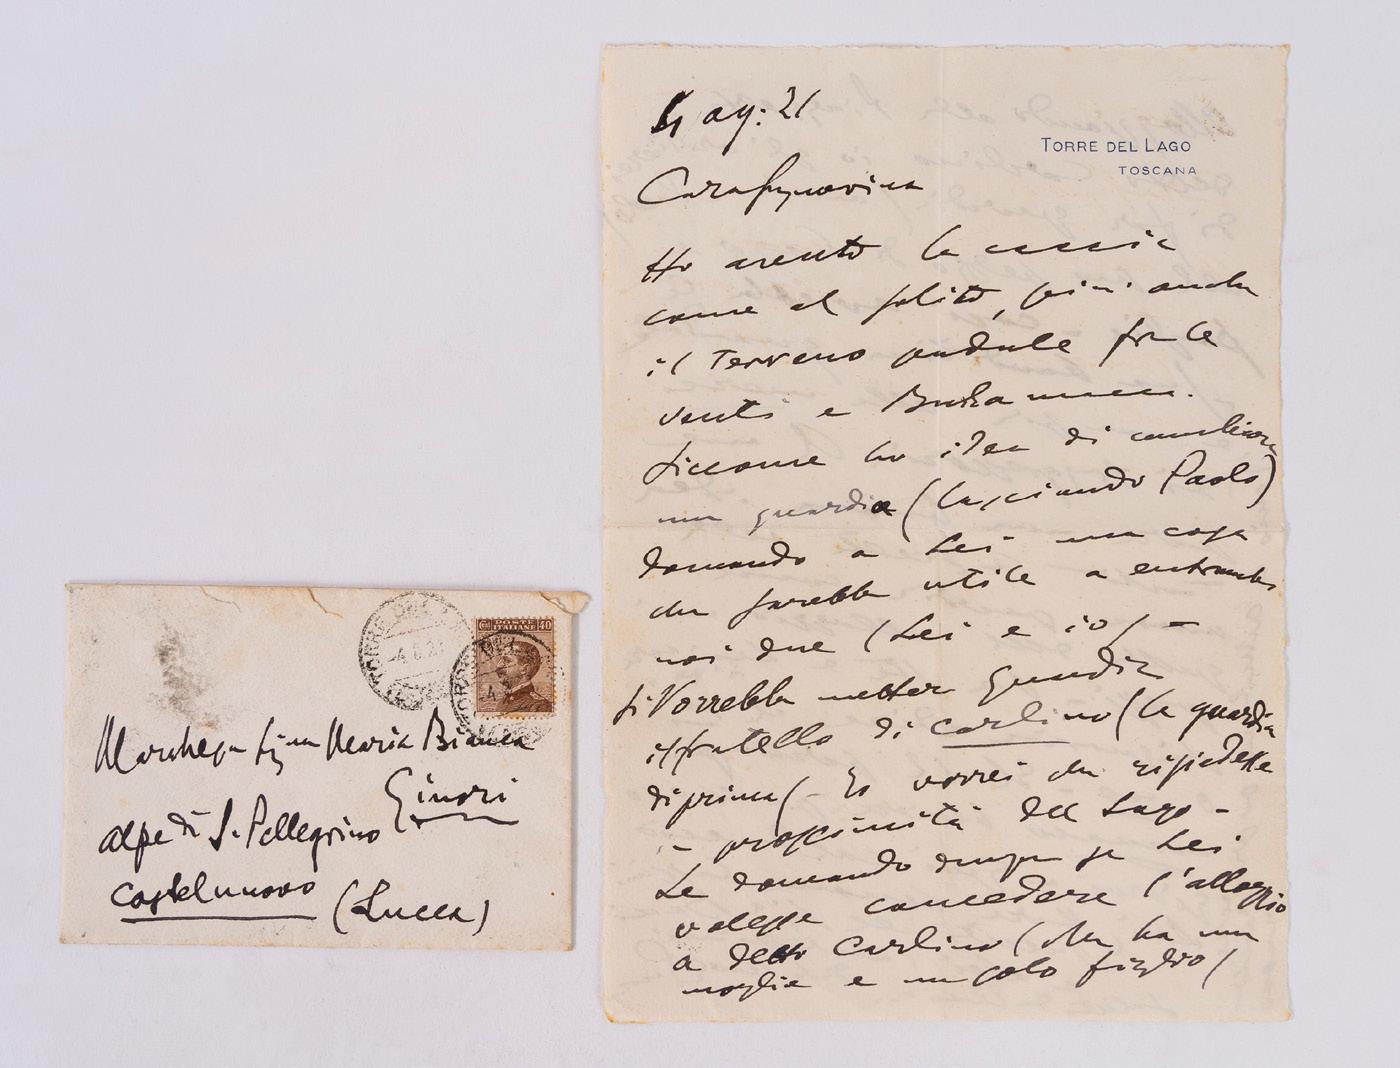 4 ag: 21
TORRE DEL LAGO
TOSCANA
Cara Signorina
Ho avuto la caccia
come al solito, più anche
il Terreno padule fra le
venti e
Siccome ho idea di cambiare
un guardia (lasciando Paolo)
domando a Lei una cosa
che sarebbe utile a entrambi
noi due (Lei e io) -
Si Vorrebbe metter guardia
il fratello di Carlino (la guardia
di prima) - Io vorrei che risiedesse
in prossimità del Lago -
Le domando dunque se Lei
volesse concedere l'alloggio
a detto Carlino (che ha una
moglie e un solo figlio)
TORRE DEL
-4.8.21
POSTE ITALIANE
40
Marchesa Sig.na Maria Bianca
Ginori
Alpe di S. Pellegrino
Castelnuovo
(Lucca)